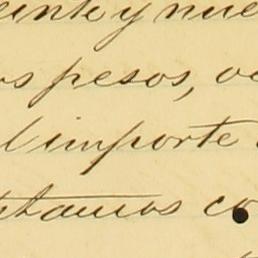 einte y nue
os pesos, oc
l importe
ptamos co